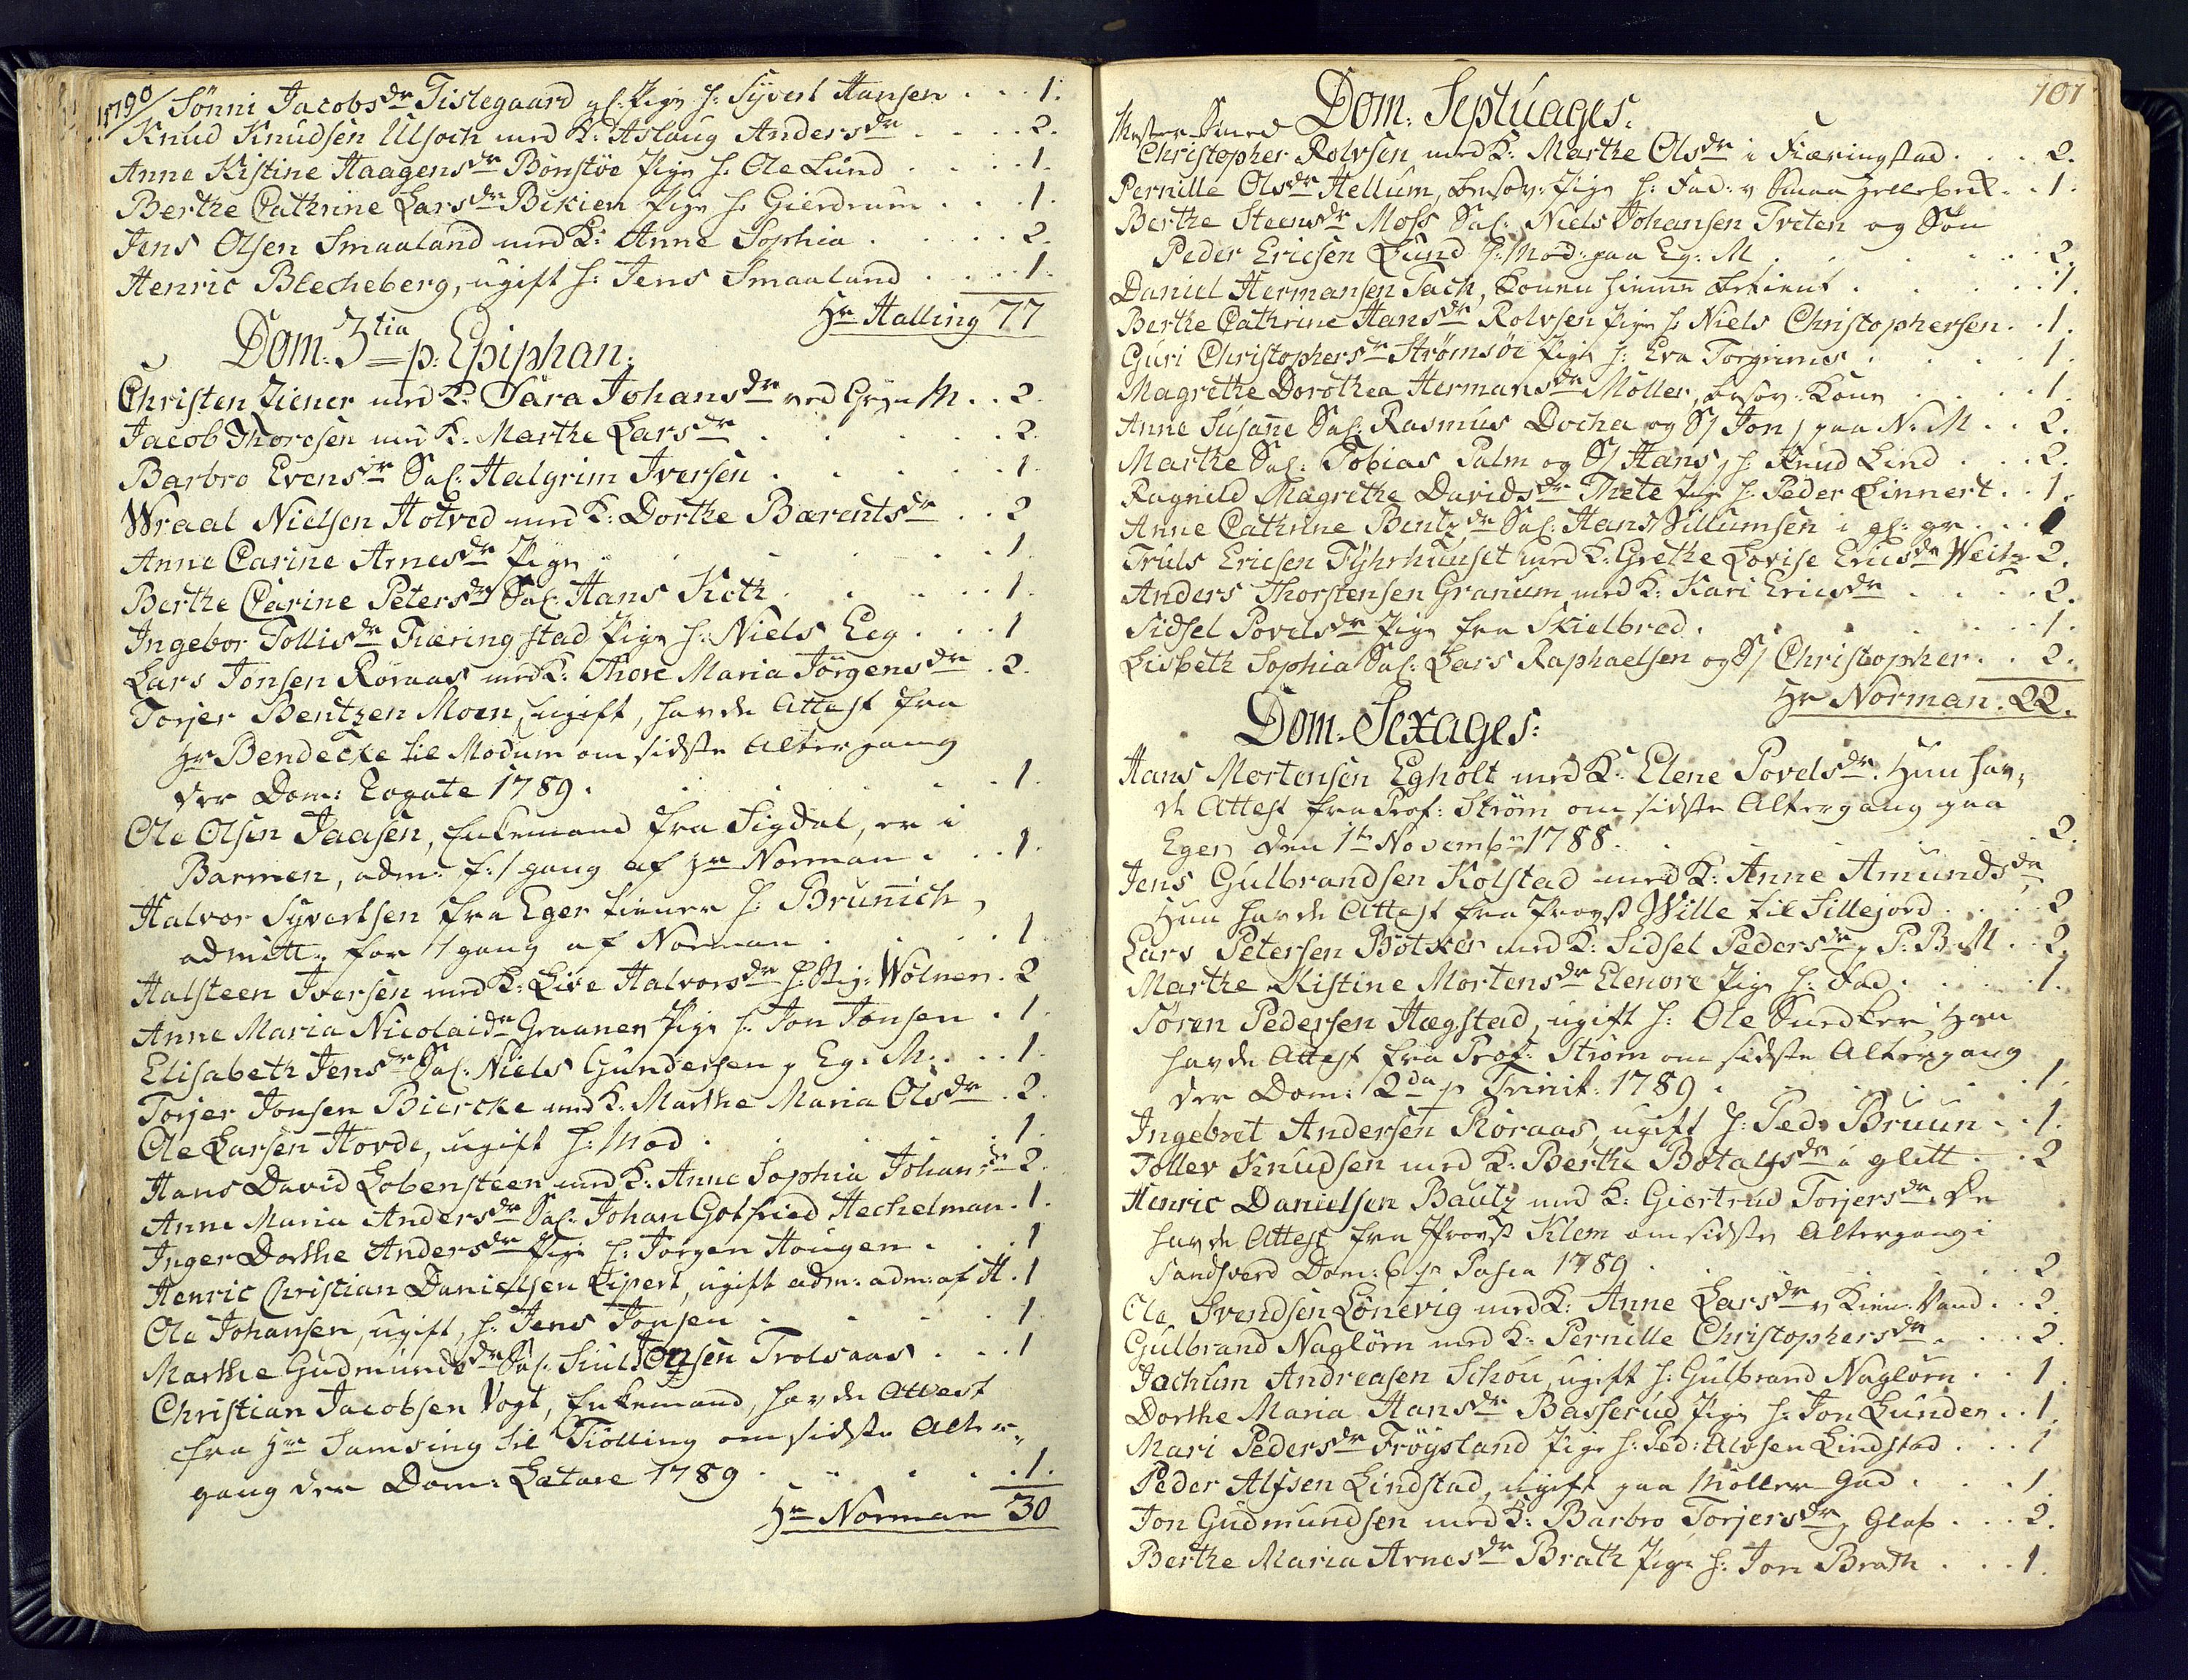 1790/ Sönni Jacobsdr Tislegaard gl: Pige h: Syvert Hansen . . . 1.
Knud Knudsen Ulsoch med K: Aslaug Andersdr . . . . 2.
Anne Kistine Haagensdr Bönstöe Pige h: Ole Lund . . . . 1.
Berthe Cathrine Larsdr Bekien Pige h: Gierdrum . . . 1.
Jens Olsen Smaaland med K: Anne Sophia . . . . 2.
Henric Blecheberg, ugift h: Jens Smaaland . . . . 1.
Hr Halling 77
Dom. 3tia p: Epiphan:
Christen Ziener med K: Sara Johansdr ved M . . 2.
Jacob Thoresen med K: Marthe Larsdr . . . . 2.
Barbro Evensdr Sal: Halgrim Iversen . . . . 1.
Wraal Nielsen Hotved med K: Dorthe Bærentsdr . . 2
Anne Carine Arnesdr Pige . . . . 1.
Berthe Carine Petersdr Sal: Hans Koth . . . . 1.
Ingebor Tollisdr Fiæringstad Pige h: Niels Eeg . . . 1
Lars Jonsen Röraas med K: Thore Maria Jörgensdr . 2.
Torjer Bentzen Moen, ugift, havde Attest fra
Hr Bendecke til Modum om sidste Altergang
der Dom: Rogate 1789 . . . . 1.
Ole Olsen Jaasen, Enkemand fra Sigdal, er i
Barmen, adm: f: 1 gang af Hr Norman . . . 1.
Halvor Syvertsen fra Eger tiener h: Brunich,
admitt: for 1 gang af Norman . . . . 1
Halsteen Iversen med K: Live Halvorsdr h: Wolner . 2
Anne Maria Nicolaidr Graanen Pige h: Jon Jonsen . 1.
Elisabeth Jensdr Sal: Niels Gundersen p Eg: M . . . 1.
Torjer Jonsen Biercke med K: Marthe Maria Olsdr . 2.
Ole Larsen Hovde, ugift h: Mod . . . . 1.
Hans David Lobensteen med K: Anne Sophia Johansdr 2.
Anne Maria Andersdr Sal: Johan Gotfried Hechelman . 1.
Inger Dorthe Andersdr Pige h: Jörgen Haugen . . . 1
Henric Christian Danielsen Lipert, ugift adm: adm: af H . 1
Ole Johansen, ugift, h: Jens Jonsen . . . . 1
Marthe Gudmundsdr Sal: Jonsen Trolsaas . . . 1
Christian Jacobsen Vogt, Enkemand, havde Attest
fra Hr Samsing til Tiölling om sidste Alter-
gang der Dom: Lætare 1789 . . . . 1.
Hr Norman 30
107
Dom: Septuages:
Mester Smed
Christopher Rolvsen med K: Marthe Olsdr i Fiæringstad . . . 2.
Pernille Olsdr Hellum, besov: Pige h: Fad: v Smaa Hellebek . . 1.
Berthe Steensdr Moss Sal: Niels Johansen Tveten og Sön
Peder Ericsen Lund h: Mod: paa Eg: M . . . . 2.
Daniel Hermansen Tach, Konen hiemme betient . . . . 1.
Berthe Cathrine Hansdr Rolvsen Pige h: Niels Christophersen . . 1.
Guri Christophersdr Strömsöe Pige h: Eva Torgrimes . . . . 1.
Magrethe Dorothea Hermansdr Möller, besov: Kone . . . . 1.
Anne Susanne Sal: Rasmus Docha og S/ Jon / paa N: M . . 2.
Marthe Sal: Tobias Palm og S/ Hans / h: Knud Lind . . . 2.
Ragnild Magrethe Davidsdr Thete Pige h: Peder Linnert . . 1.
Anne Cathrine Bentzdr Sal: Hans Villumsen i gl: gr . . . 1
Truls Ericsen Fyhrhuuset med K: Grethe Lovise Ericsdr Weitz 2.
Anders Thorstensen Granum med K: Kari Ericsdr . . . . 2.
Sidsel Povelsdr Pige fra Skielbred . . . . 1.
Lisbeth Sophia Sal: Lars Raphaelsen og S/ Christopher . . 2.
Hr Norman . 22.
Dom. Sexages:
Hans Mortensen Egholt med K: Elene Povelsdr. Hun hav-
de Attest fra Prof: Ström om sidste Altergang paa
Eger den 1te Novembr 1788 . . . . 2.
Jens Gulbrandsen Kolstad med K: Anne Amundsdr
Hun havde Attest fra Provst Wille til Sillejord . . . . 2
Lars Petersen Bötker med K: Sidsel Pedersdr p P: B: M . . 2.
Marthe Kistine Mortensdr Elenore Pige h: Fad . . . . 1.
Sören Pedersen Hægstad, ugift h: Ole Snedker, Han
havde Attest fra Prof: Ström om sidste Altergang
der Dom: 12da p Trinit: 1789 . . . . 1.
Ingebret Andersen Röraas, ugift h: Peds Bruun . . 1.
Tollev Knudsen med K: Berthe Botalfsdr i glitt . . 2
Henric Danielsen Bautz med K: Giertrud Torjersdr. De
havde Attest fra Provst Klem om sidste Altergang i
Sandsverd Dom: 6 p Pasca 1789 . . . . 2.
Ole Svendsen Lönevig med K: Anne Larsdr v Kien: Vand . . 2.
Gulbrand Naglörn med K: Pernille Christophersdr . . . 2.
Jochum Andreasen Schou, ugift h: Gulbrand Naglorn . . 1.
Dorthe Maria Hansdr Basserud Pige h: Jon Lunden . . 1.
Mari Pedersdr Fröysland Pige h: Ped: Alvsen Lindstad . . . 1
Peder Alfsen Lindstad, ugift paa Möller Gad . . . . 1.
Jon Gudmundsen med K: Barbro Torjersdr p Glas . . . 2.
Berthe Maria Arnesdr Brath Pige h: Jon Brath . . . 1.